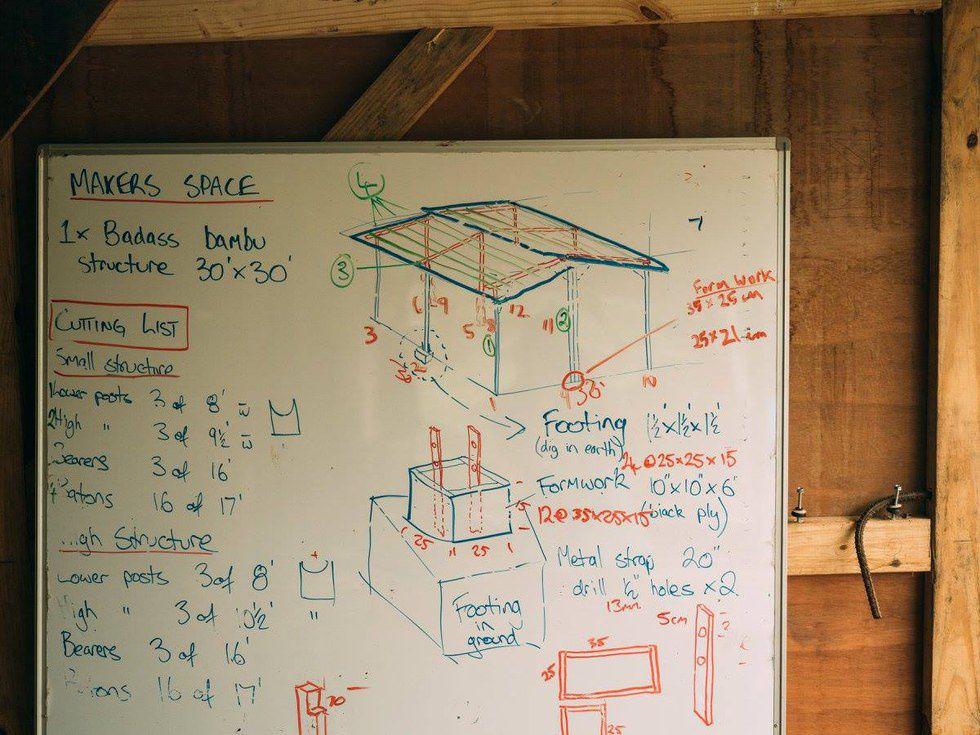 MAKERS SPACE
1x Badass bambu
structure 30'x30'
CUTTING LIST
Small structure
Lower posts 3 of 8'
High " 3 of 9½'
Bearers 3 of 16'
Batons 16 of 17'
gh Structure
Lower posts 3 of 8'
High " 3 of "
Bearers 3 of 16'
ons 16 of 17'
4
3
7
3
6
9
5
8
12
1
11
2
1
10
Form Work
35 x 25 cm
25x21 cm
Footing 1½'x1½'x1½'
(dig in earth)
@25x25x15
Formwork 10"x10"x6"
12@35x25x15
(black ply)
15
25
25
Metal strap 20"
drill ½" holes x2
13mm
Footing
in
ground
5cm
35
25
20
25